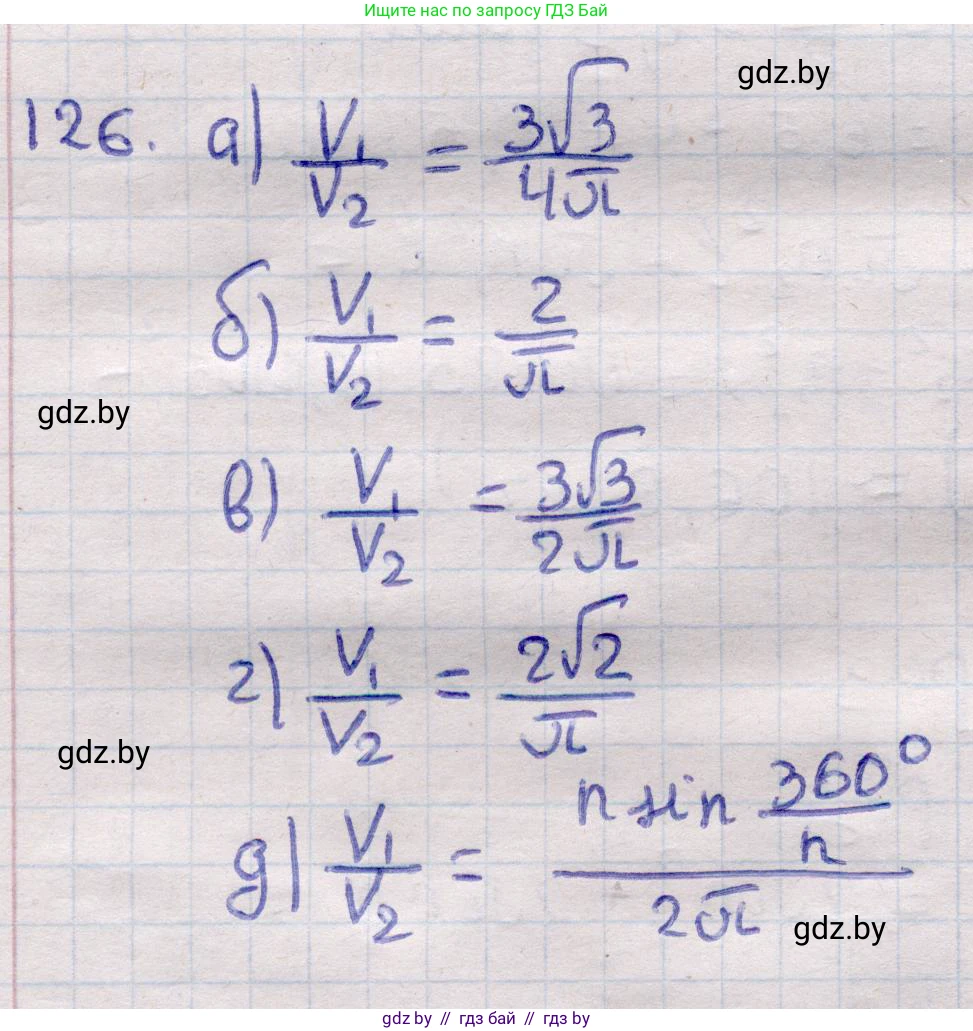 Ищите нас по запросу ГДЗ Бай
gdz.by
126. а) V₁/V₂ = 3√3/4π
б) V₁/V₂ = 2/π
gdz.by
в) V₁/V₂ = 3√3/2π
г) V₁/V₂ = 2√2/π
gdz.by
д) V₁/V₂ = n sin 360°/n / 2π
gdz.by
gdz.by // гдз бай // gdz by